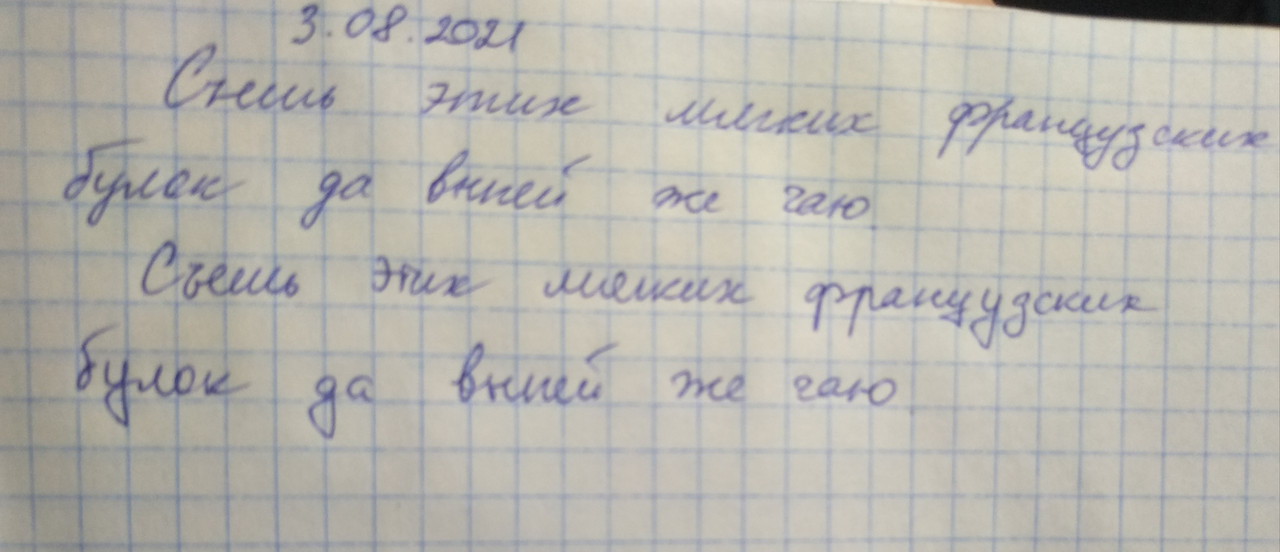 3.08.2021
Съешь этих мягких французских
булок да выпей же чаю
Съешь этих мягких французских
булок да выпей же чаю